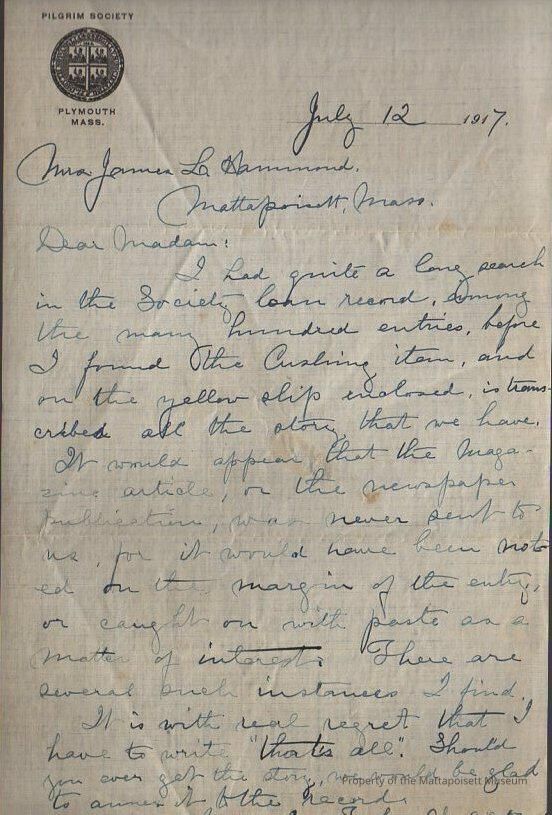 PILGRIM SOCIETY
PLYMOUTH
MASS.
July 12 1917.
Mrs James L. Hammond.
Mattapoisett, Mass.
Dear Madam:
I had quite a long search
in the Society loan record, among
the many hundred entries, before
I found the Cushing item, and
on the yellow slip enclosed, is trans-
cribed all the story that we have.
It would appear that the Maga-
zine article, or the newspaper
publication, was never sent to
us, for it would have been not-
ed on the margin of the entry,
or caught on with paste as a
matter of interest. There are
several such instances I find.
It is with real regret that I
have to write "that's all". Should
you ever get the story, we would be glad
to annex it to the record.
Property of the Mattapoisett Museum